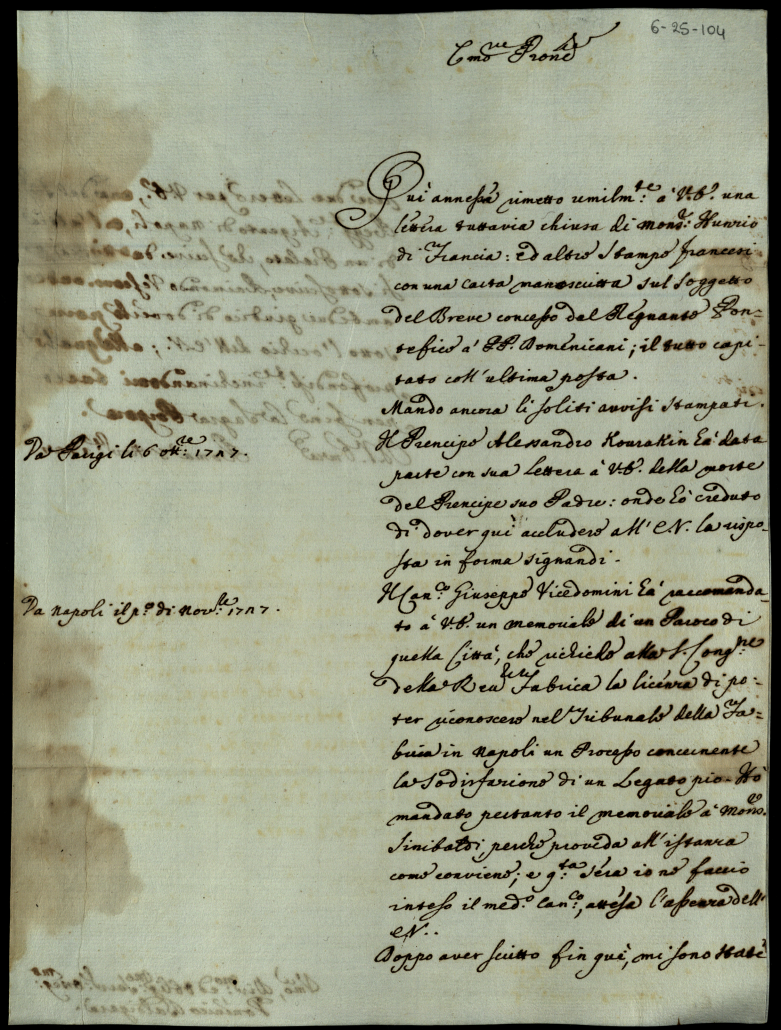 6-25-104
Emo. e Rmo. Prone
Quì annessa rimetto umilm.te à V.E. una
lettera tuttavia chiusa di mons.r Hunrio
di Francia: ed altre stampe francesi
con una carta manoscritta sul soggetto
del Breve concesso dal Regnante Pon-
tefice à PP. Domenicani; il tutto capi-
tato coll'ultima posta.
Mando ancora li soliti avvisi stampati.
Da Parigi li 6 ott.re 1727.
Il Prencipe Alessandro Kourakin hà data
parte con sua lettera à V.E. della morte
del Prencipe suo Padre: onde hò creduto
di dover quì accludere all'E.V. la rispo-
sta in forma signandi.
Da Napoli il p.o di Nov.re 1727.
Il Can.co Giuseppe Vicedomini hà raccomanda-
to à V.E. un memoriale di un Paroco di
quella Città, che richiede alla S. Cong.ne
della Reu. Fabrica la licenza di po-
ter riconoscere nel Tribunale della Fa-
brica in Napoli un Processo concernente
la sodisfazione di un Legato pio. Hò
mandato pertanto il memoriale à Mons.r
Sinibaldi, perche proveda all'istanza
come conviene; e q.ta sera io ne faccio
inteso il med.o Can.co, attesa l'assenza dell'
E.V..
Doppo aver scritto fin quì, mi sono state